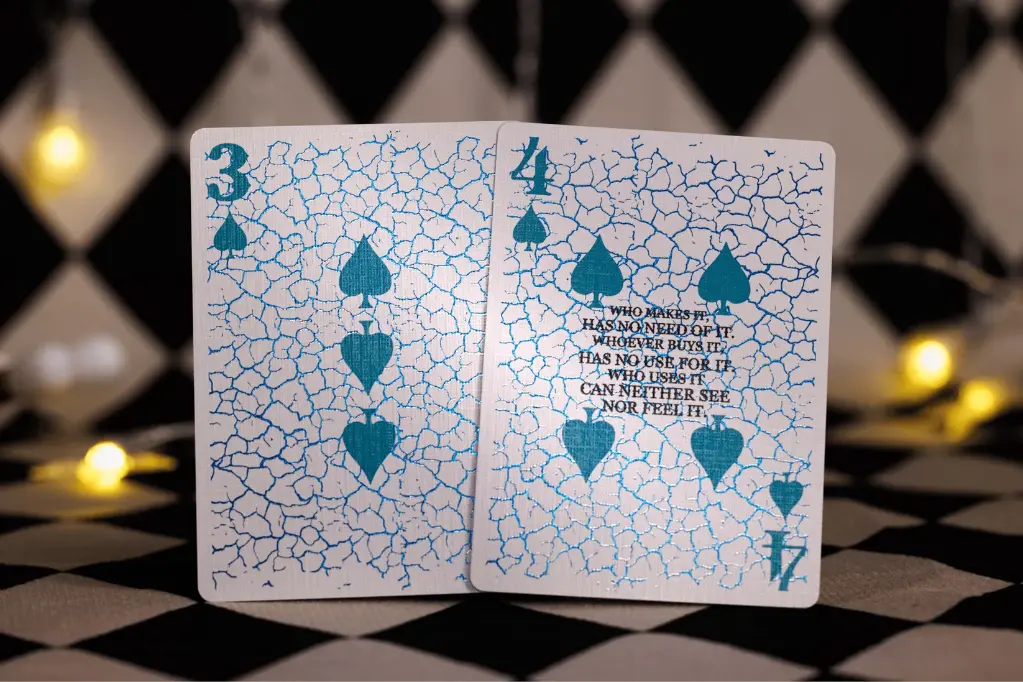 3
4
WHO MAKES IT,
HAS NO NEED OF IT.
WHOEVER BUYS IT,
HAS NO USE FOR IT.
WHO USES IT
CAN NEITHER SEE
NOR FEEL IT.
4